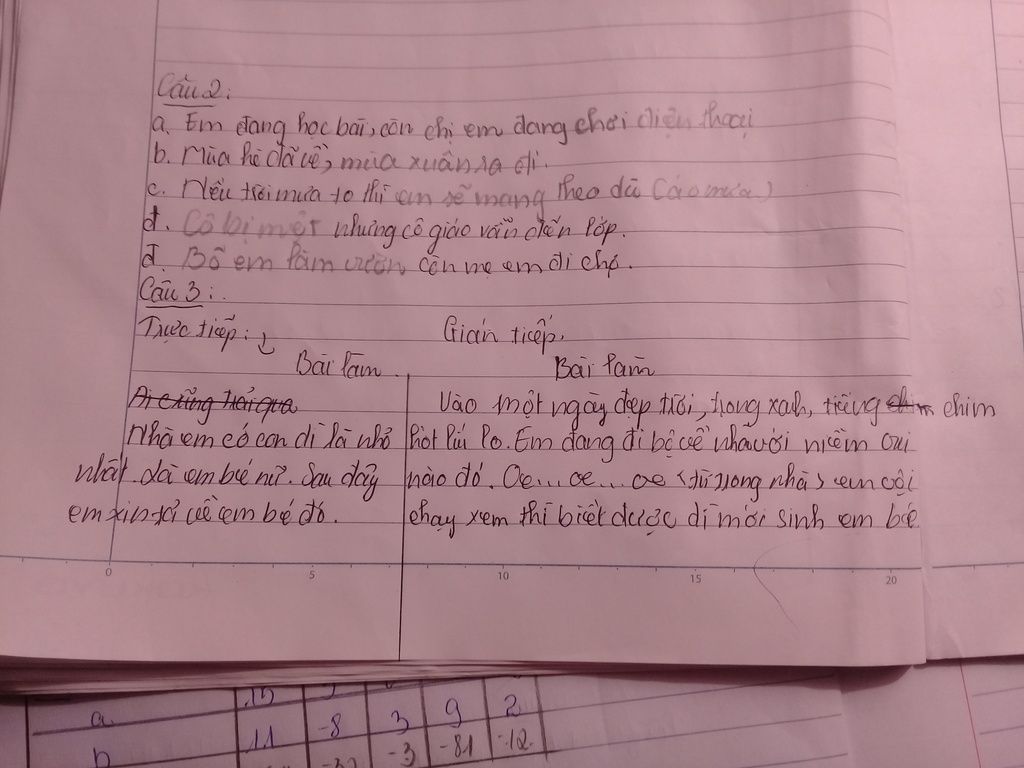 Câu 2:
a. Em đang học bài, còn chị em đang chơi điện thoại
b. Mùa hè đã về, mùa xuân ra đi.
c. Nếu trời mưa to thì em sẽ mang theo dù (áo mưa)
d. Cô bị mệt nhưng cô giáo vẫn đến lớp.
đ. Bố em làm vườn còn mẹ em đi chợ.
Câu 3:
Trực tiếp: Gián tiếp.
Bài làm Bài làm
Ai cũng trải qua
Nhà em có con dì là nhỏ
nhất. đó em bé nữ. Sau đây
em xin tả về em bé đó.
Vào một ngày đẹp trời, trong xanh, tiếng chim chim
hót líu lo. Em đang đi bộ về nhà với niềm vui
nào đó. Oe... oe... oe (từ trong nhà) em vội
chạy xem thì biết được dì mới sinh em bé
0 5 10 15 20
a 15 9 2
b 11 -8 3
-3 -81 -12